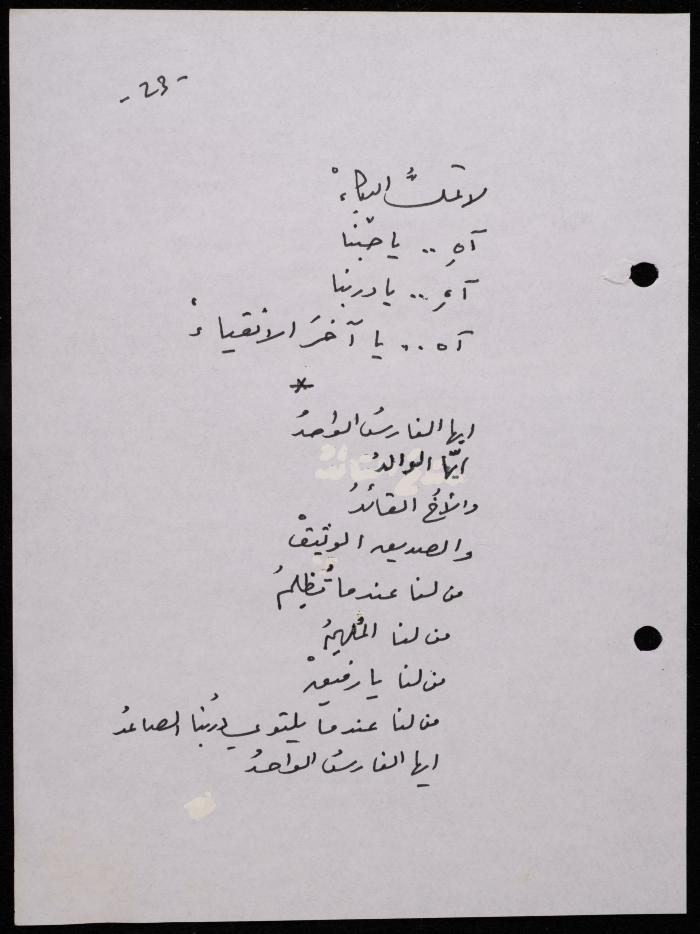 - 23 -
لا تملُّ البكاءْ
آهِ .. يا حبّنا
آهِ .. يا دربنا
آه .. يا آخرَ الأنقياءْ
*
ايها الفارسُ الواحدُ
ايّها الوالدُ
والأخُ القائدُ
والصديق الوثيقْ
من لنا عندما تُظلِمُ
من لنا المُلهِمُ
من لنا يا رفيقْ
من لنا عندما يلتوي دربُنا الصاعدُ
ايها الفارسُ الواحدُ